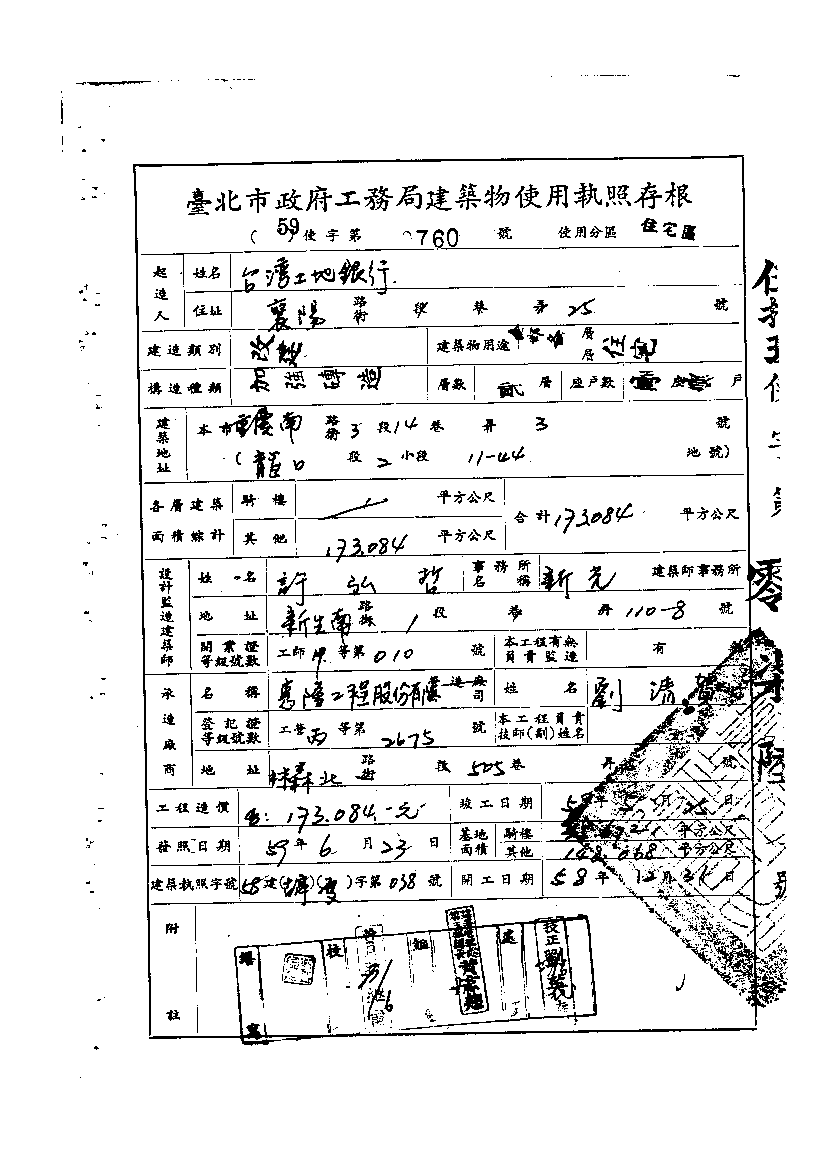 臺北市政府工務局建築物使用執照存根
(59)使字第 0760 號 使用分區 住宅區
起造人 姓名 台湾土地銀行
住址 襄陽 路街 段 巷 弄 25 號
建造類別 改建 建築物用途 層層 住宅
構造種類 加強磚造 層數 貳層 座戶數 戶
建築地址 本市重慶南 路街 3 段 14 巷 弄 3 號
(龍口 段 2 小段 11-44 地號)
各層建築面積綜計 騎樓 平方公尺 合計 173.084 平方公尺
其他 173.084 平方公尺
設計監造建築師 姓名 許弘哲 事務所名稱 新光 建築師事務所
地址 新生南 路街 1 段 巷 弄 110-8 號
開業證等級號數 工師 甲 等第 010 號 本工程有無負責監造 有
承造廠商 名稱 工程股份有限公司 姓名 劉
登記證等級號數 工營 丙 等第 2675 號 本工程負責技師(副)姓名
地址 林森北 路街 段 505 巷 弄 號
工程造價 173.084.-元 竣工日期 59年5月25日
發照日期 59年6月23日 基地面積 騎樓 平方公尺
其他 148.068 平方公尺
建築執照字號 58建( )( )字第 038 號 開工日期 58年12月31日
附註
校正